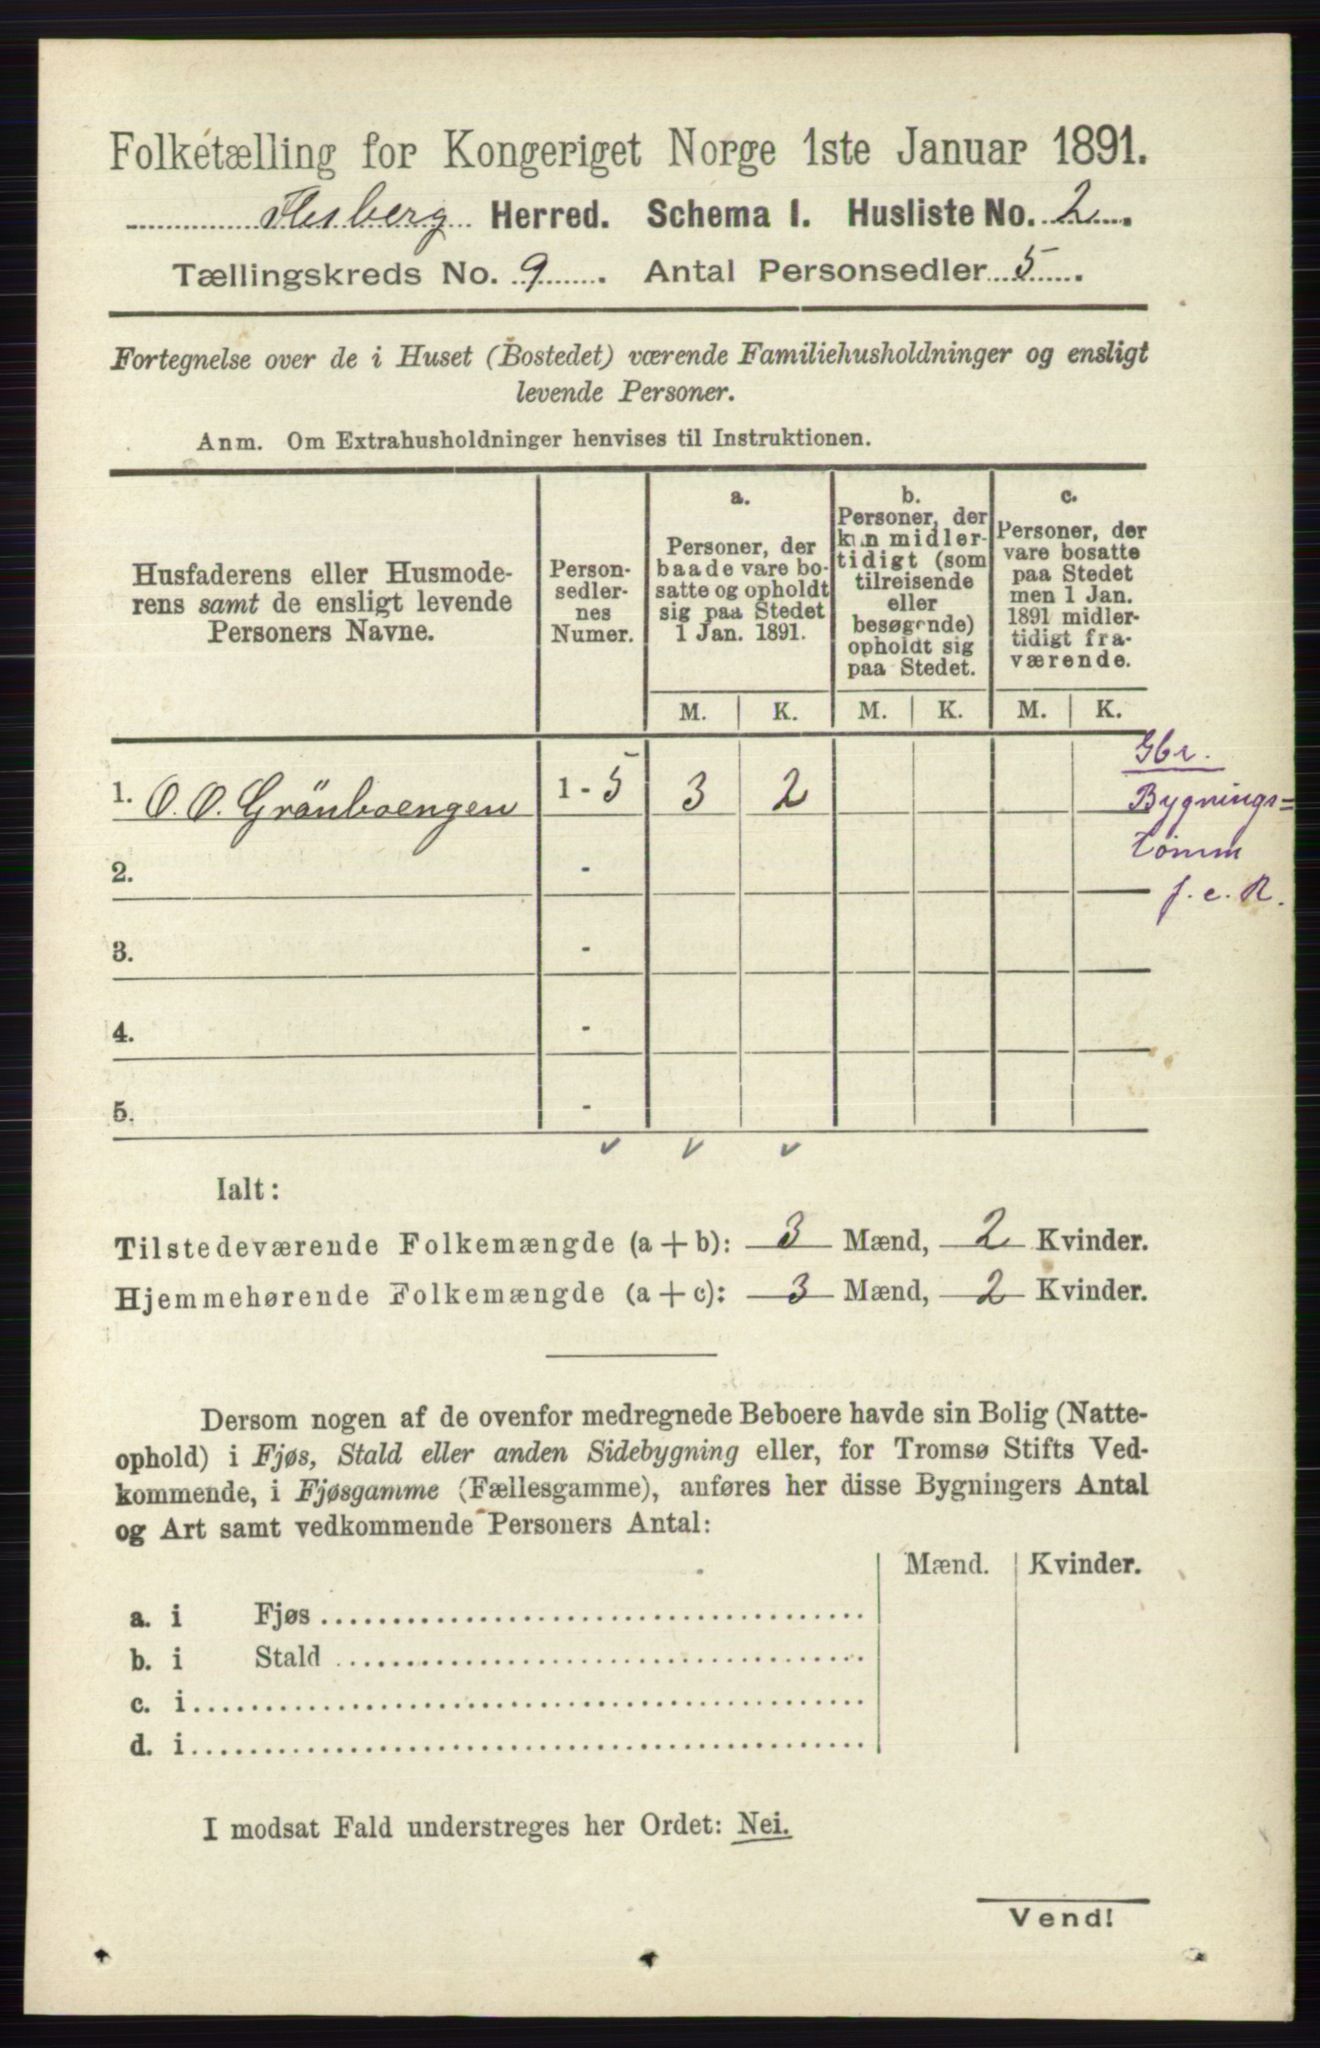 Folketælling for Kongeriget Norge 1ste Januar 1891.
Flesberg Herred. Schema I. Husliste No. 2.
Tællingskreds No. 9. Antal Personsedler 5.
Fortegnelse over de i Huset (Bostedet) værende Familiehusholdninger og ensligt
levende Personer.
Anm. Om Extrahusholdninger henvises til Instruktionen.
Husfaderens eller Husmode-
rens samt de ensligt levende
Personers Navne.
Person-
sedler-
nes
Numer.
a.
Personer, der
baade vare bo-
satte og opholdt
sig paa Stedet
1 Jan. 1891.
b.
Personer, der
kun midler-
tidigt (som
tilreisende
eller
besøgende)
opholdt sig
paa Stedet.
c.
Personer, der
vare bosatte
paa Stedet
men 1 Jan.
1891 midler-
tidigt fra-
værende.
M. K. M. K. M. K.
1. O. O. Grönboengen 1 - 5 3 2
Gbr.
Bygnings=
tømm
f. e. R.
2. -
3. -
4. -
5. -
Ialt:
Tilstedeværende Folkemængde (a + b): 3 Mænd, 2 Kvinder.
Hjemmehørende Folkemængde (a + c): 3 Mænd, 2 Kvinder.
Dersom nogen af de ovenfor medregnede Beboere havde sin Bolig (Natte-
ophold) i Fjøs, Stald eller anden Sidebygning eller, for Tromsø Stifts Ved-
kommende, i Fjøsgamme (Fællesgamme), anføres her disse Bygningers Antal
og Art samt vedkommende Personers Antal:
Mænd. Kvinder.
a. i Fjøs
b. i Stald
c. i
d. i
I modsat Fald understreges her Ordet: Nei.
Vend!